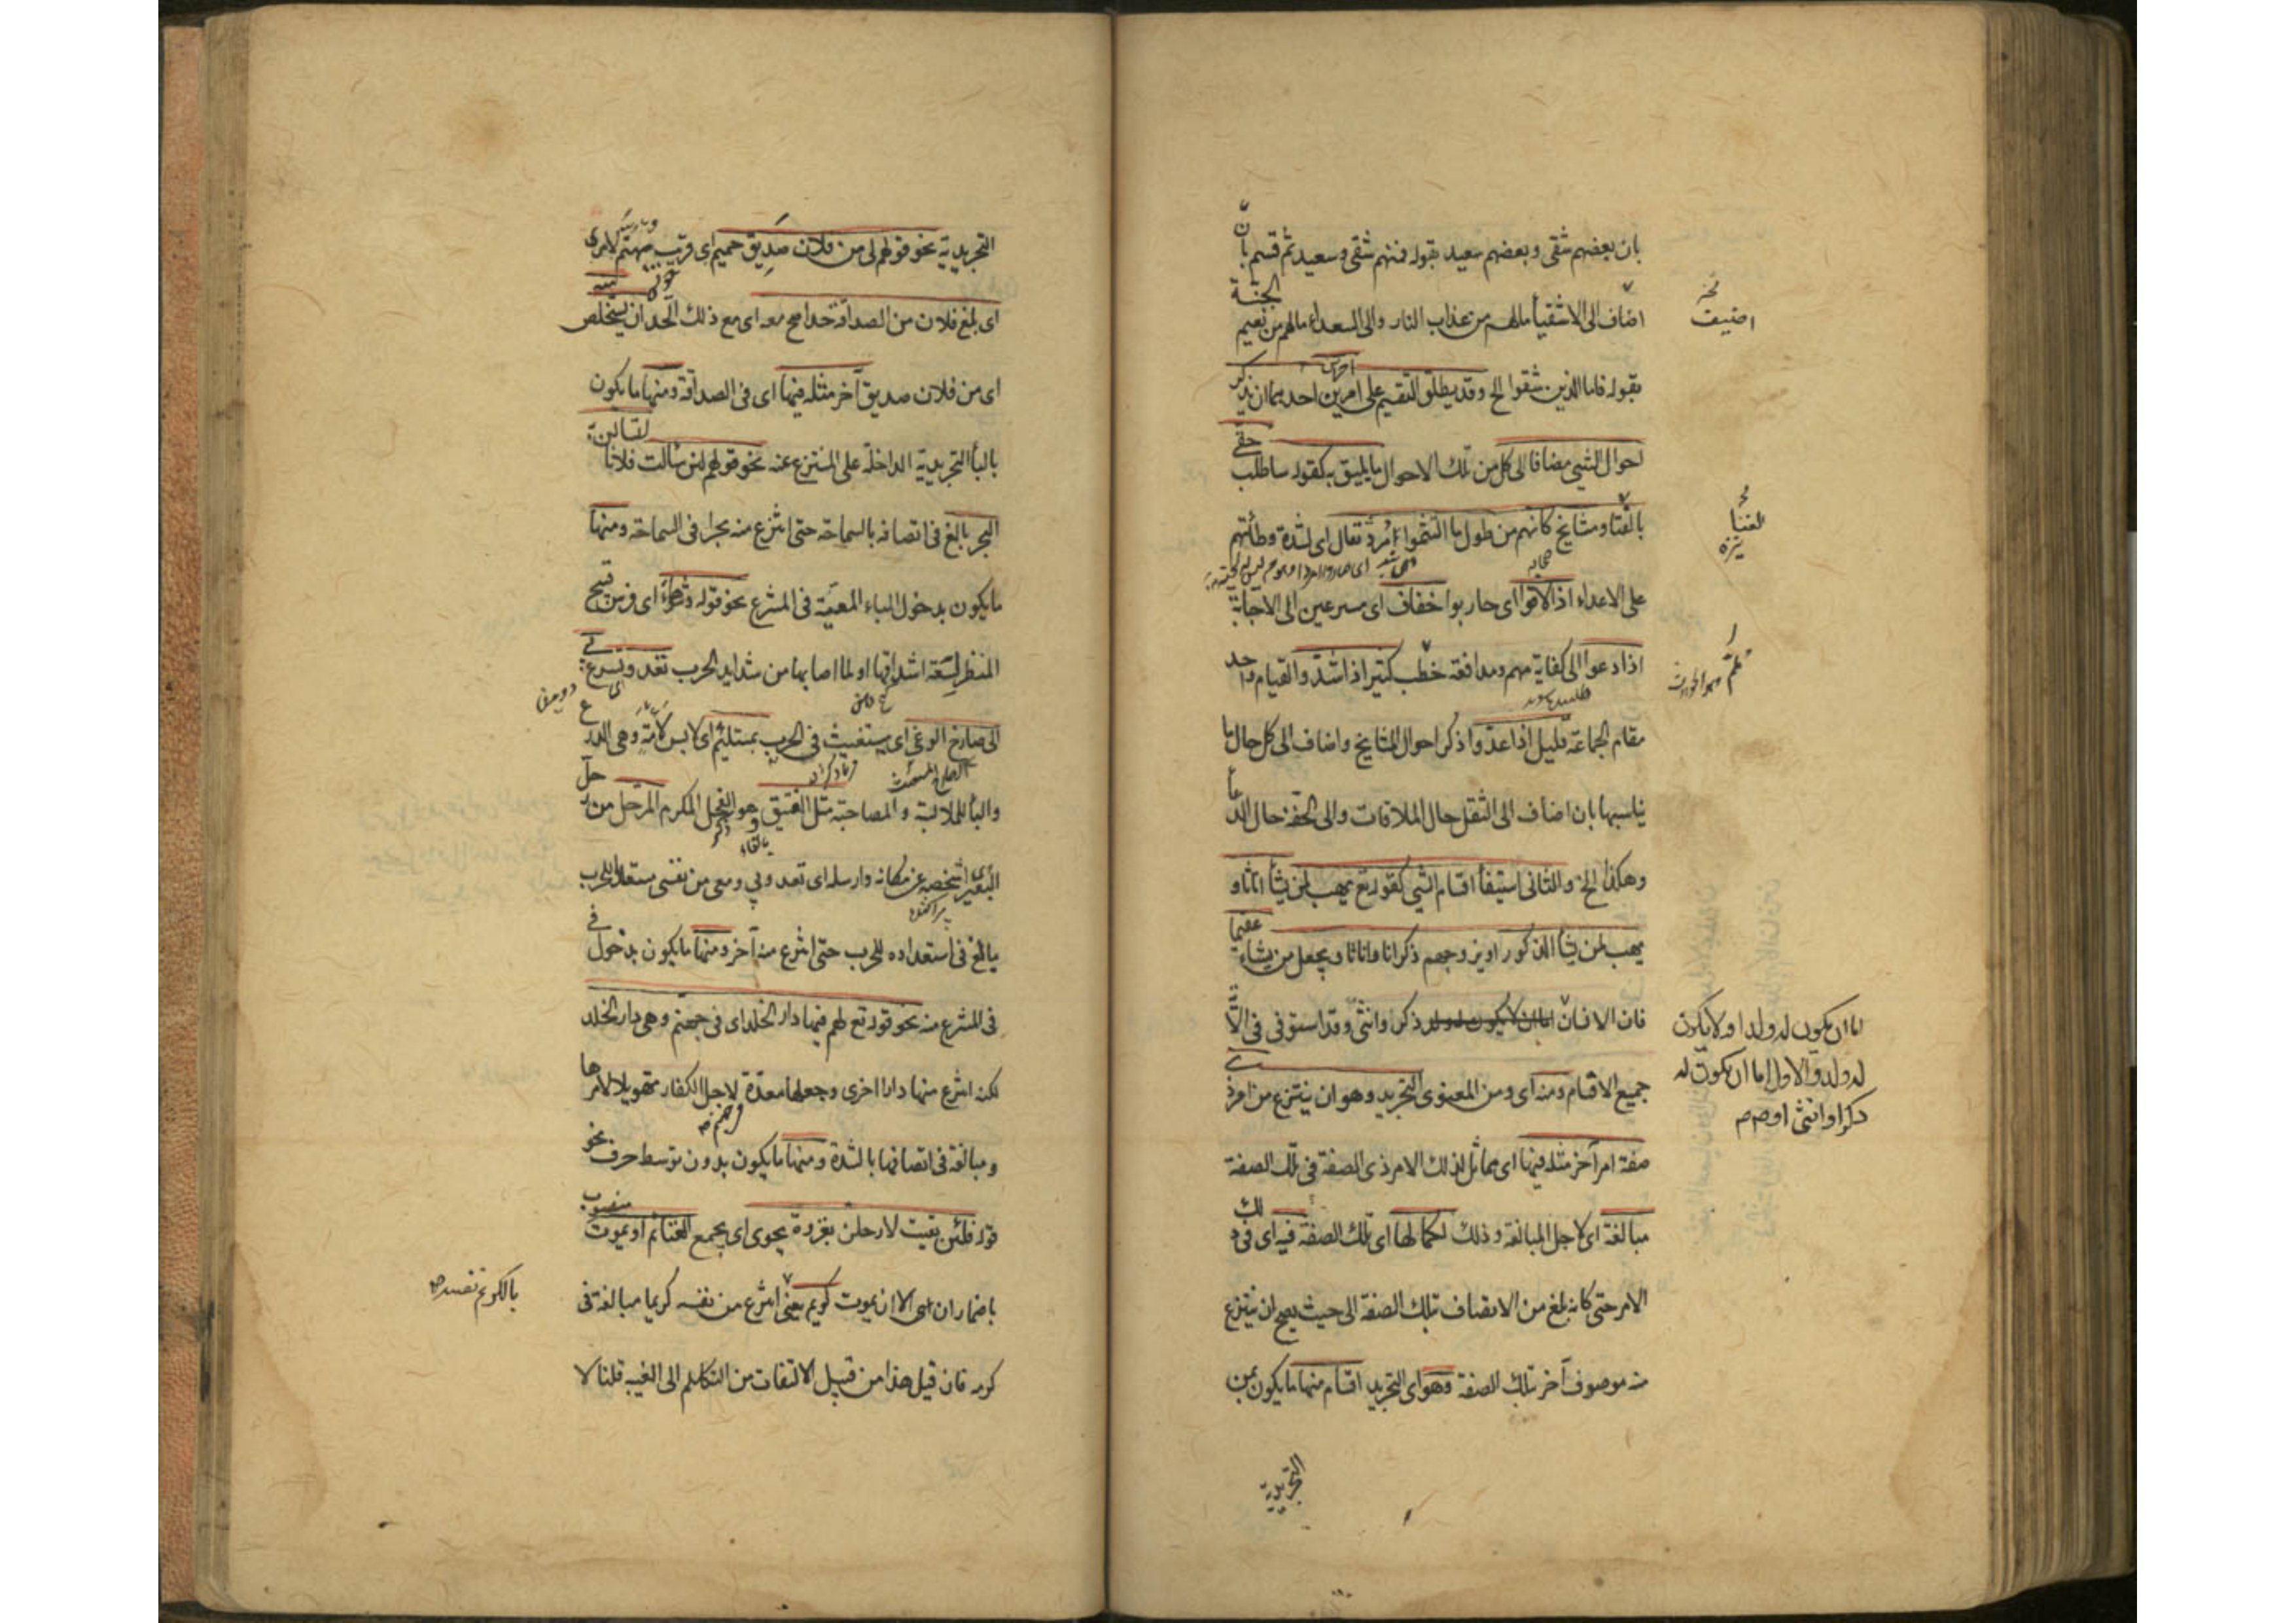 بان بعضهم شقی وبعضهم سعید بقوله فمنهم شقی وسعید ثم قسم بانّ
اضاف الی الاشقیأ مالهم من عذاب النار والی السعداء مالهم من نعیم الجنة
بقوله فاما الذین شقوا الخ وقد یطلق التقسیم علی امرین آخرین احدهما ان یذکر
احوال الشیٔ مضافا الی کل من تلک الاحوال ما یلیق به کقوله ساطلب حقی
بالقنا ومشایخ کانهم من طول ما التثموا مُرْدُ ثقال ای لشدة وطأتهم
علی الاعداء اذا لاقوا ای حاربوا خفاف ای مسرعین الی الاجابة
اذا دعوا الی کفایة مهم ومدافعة خطب کثیر اذا شدّوا لقیام واحد
مقام الجماعة قلیل اذا عدّوا ذکر احوال المشایخ واضاف الی کل حال ما
یناسبها بان اضاف الی الثقل حال الملاقات والی الخفة حال الدعأ
وهکذا الخ والثانی استیفأ اقسام الشیٔ کقوله تع یهب لمن یشأ اناثا و
یهب لمن یشأ الذکور او یزوجهم ذکرانا واناثا ویجعل من یشاء عقیما
فان الانسان اما ان لا یکون له ولد ذکر وانثی وقد استوفی فی الآیة
جمیع الاقسام ومنه ای ومن المعنوی التجرید وهو ان ینتزع من امر ذی
صفة امر آخر مثله فیها ای مماثل لذلک الامر ذی الصفة فی تلک الصفة
مبالغة ای لاجل المبالغة وذلک لکمالها ای تلک الصفة فیه ای فی ذلک
الامر حتی کانه بلغ من الاتصاف بتلک الصفة الی حیث یصح ان ینتزع
منه موصوف آخر بتلک الصفة وهو ای التجرید اقسام منها ما یکون بمن
التجریدیة
اضیف
اما ان یکون له ولد او لا یکون
له ولد والاول اما ان یکون له
ذکر او انثی او
التجریدیة نحو قولهم لی من فلان صَدِیق حمیم ای قریب یهتم لامره
ای بلغ فلان من الصداقة حدا صح معه ای مع ذلک الحد ان یستخلص
ای من فلان صدیق آخر مثله فیها ای فی الصداقة ومنها ما یکون
بالبأ التجریدیة الداخلة علی المنتزع عنه نحو قولهم لئن سألت فلانا لتسالن به
البحر بالغ فی اتصافه بالسماحة حتی انتزع منه بحرا فی السماحة ومنها
ما یکون بدخول الباء المعیّة فی المنتزع نحو قوله وشوهاء ای فرس قبیح
المنظر لسعة اشداقها او لما اصابها من شداید الحرب تعد وتسرع بی
الی صارخ الوغی ای مستغیث فی الحرب بمستلئم ای لابس لأمة وهی الدرع
والبأ للملابسة والمصاحبة مثل الفنیق هو الفحل المکرم المرحل من رحل
البعیر اشخصه عن مکانه وارسله ای تعد وبی ومعی من نفسی مستعد للحرب
بالغ فی استعداده للحرب حتی انتزع منه آخر ومنها ما یکون بدخول فی
فی المنتزع منه نحو قوله تع لهم فیها دار الخلد ای فی جهنم وهی دار الخلد
لکنه انتزع منها دارا اخری وجعلها معدّة لاجل الکفار تهویلا لامرها
ومبالغة فی اتصافها بالشدة ومنها ما یکون بدون توسط حرف نحو
قوله فلئن بقیت لارحلن بغزوة یحوی ای یجمع الغنائم او یموت منصوب
باضمار ان ای الا ان یموت کریم یعنی انتزع من نفسه کریما مبالغة فی
کرمه فان قیل هذا من قبیل الالتفات من التکلم الی الغیبة قلنا لا
بالکریم نفسه